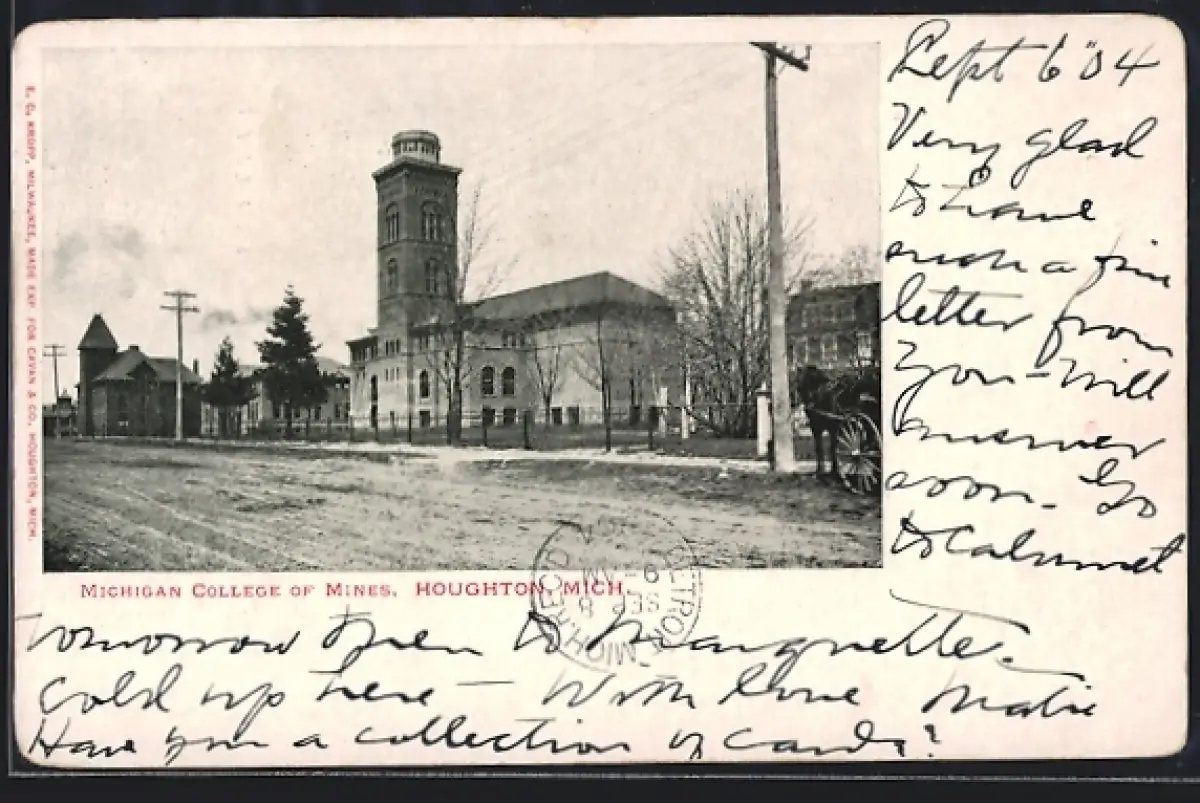 E. C. KROPP, MILWAUKEE, MADE EXP. FOR CAVAN & CO., HOUGHTON, MICH.
Sept 6 "04
Very glad
to have
such a fine
letter from
you - Will
answer
soon. Go
to Calumet
MICHIGAN COLLEGE OF MINES, HOUGHTON, MICH.
DETROIT MICH. REC'D
SEP 8
9 - AM
tomorrow then to Marquette.
Cold up here — With love
Have you a collection of cards?